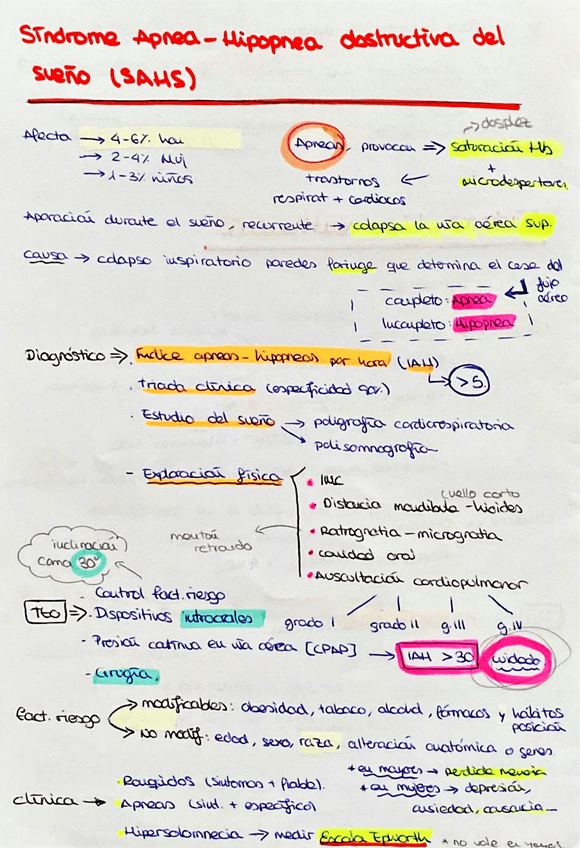 Síndrome Apnea-Hipopnea obstructiva del
sueño (SAHS)
Afecta → 4-6% hom
→ 2-4% Muj
→ 1-3% niños
Apneas, provocan ⇒ saturación Hb
+
microdespertares
trastornos ←
respirat + cardiacos
Aparición durante el sueño, recurrente → colapsa la vía aérea sup.
causa → colapso inspiratorio paredes faringe que determina el cese del
flujo aéreo
completo: Apnea
Incompleto: Hipopnea
Diagnóstico ⇒ . Índice apneas-hipopneas por hora (IAH)
→ >5
. Triada clínica (especificidad
. Estudio del sueño → poligrafía cardiorespiratoria
→ polisomnografía
- Exploración física
• IMC
cuello corto
• Distancia mandíbula-hioides
• Retrognatia-micrognatia
mentón retraído
• cavidad oral
• Auscultación cardiopulmonar
grado I grado II g.III g.IV
inclinación
cama 30º
TTO ⇒
- Control fact. riesgo
- Dispositivos intraorales
- Presión continua en vía aérea [CPAP] → IAH >30 cuidado
- cirugía.
fact. riesgo
→ modificables: obesidad, tabaco, alcohol, fármacos y hábitos
posición
→ No modif: edad, sexo, raza, alteración anatómica o genes.
* en mayores → perdida memoria
* en mujeres → depresión,
ansiedad,
clínica →
. Ronquidos (síntomas + fiable).
. Apneas (sínt. + específico)
. Hipersolomnecia → medir Escala Epworth * no vale en